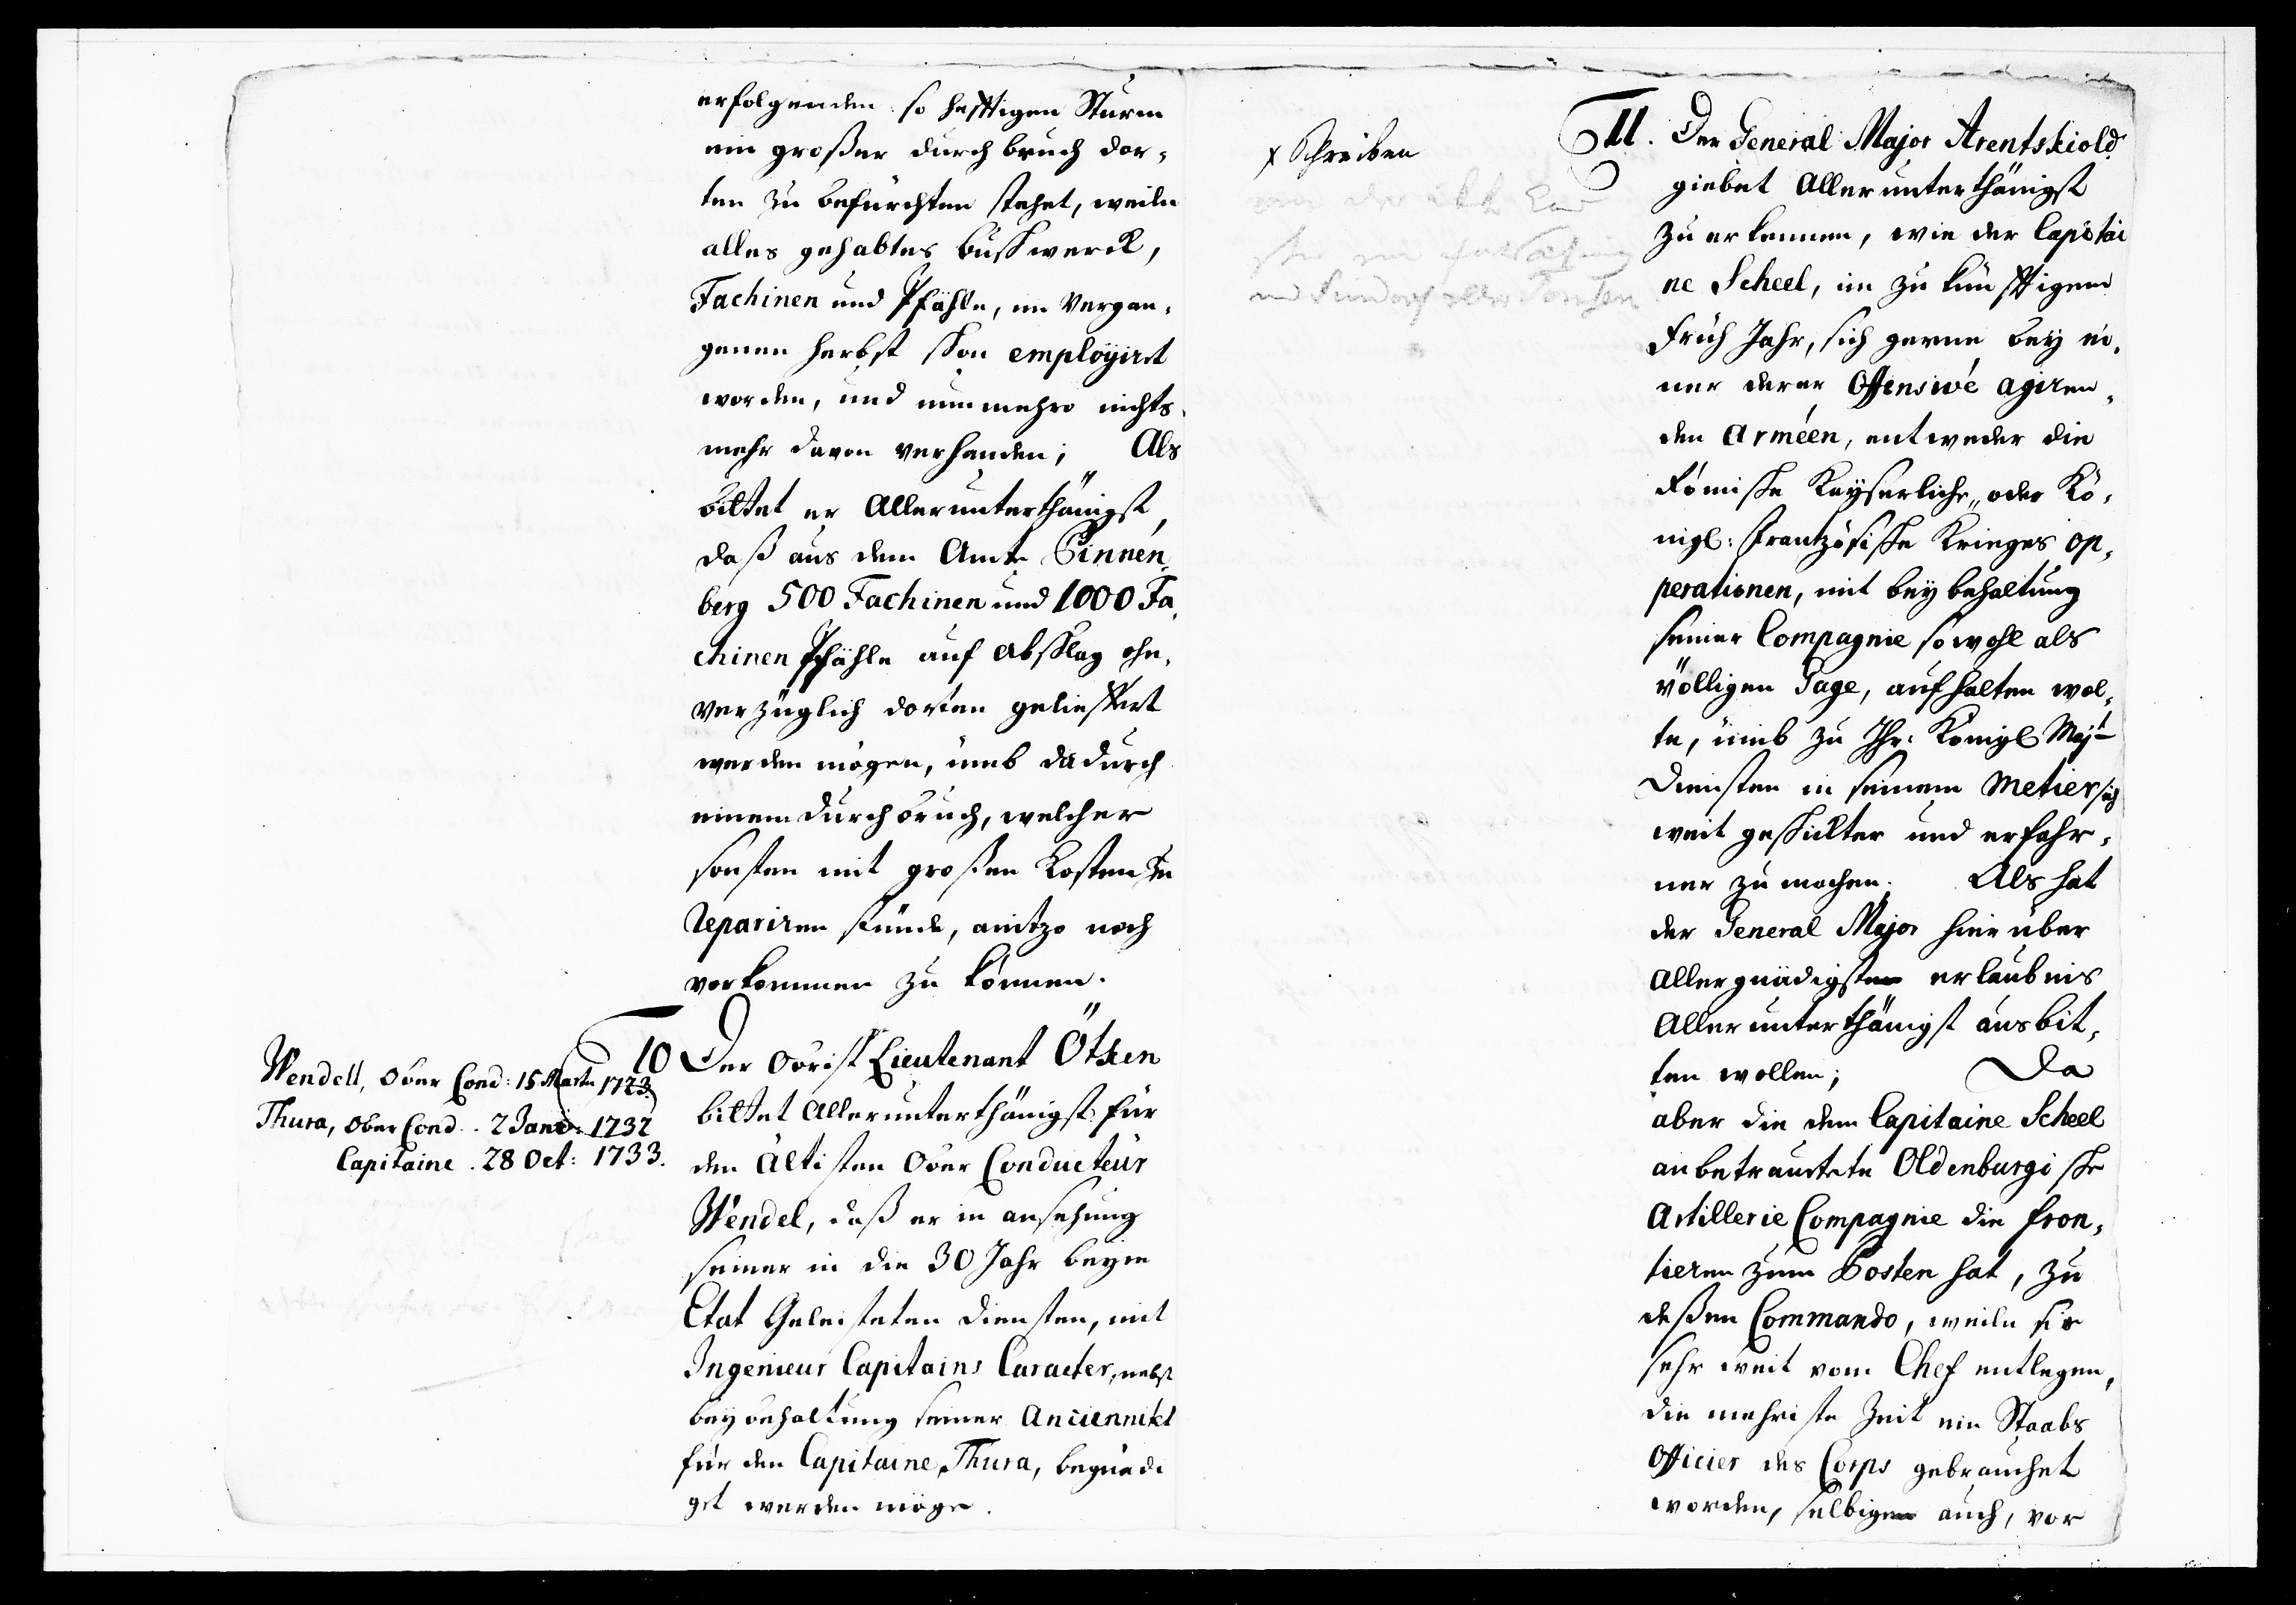 erfolgenden so hefftigen Sturm
ein großer durch bruch dor-
ten zu befürchten stehet, weiln
alles gehabtes buschwerck,
Fachinen und Pfähle, im Vergan-
genen herbst schon employiret
worden, und nunmehro nichts
mehr davon verhanden; Als
bittet er Allerunterthänigst,
daß aus dem Amte Pinnen-
berg 500 Fachinen und 1000 Fa-
chinen Pfähle auf abschlag ohn-
verzüglich dorten geliefert
werden mögen, umb dadurch
einem durchbruch, welcher
sonsten mit großen Kosten zu
repariren stünde, anitzo noch
vorkommen zu können.
10 Der Obrist Lieutenant Ötken
bittet Allerunterthänigst für
den Ältisten Ober Conducteur
Wendel, daß er in ansehung
seiner in die 30 Jahr beym
Etat Geleisteten diensten, mit
Ingenieur Capitains Caracter, nebst
beybehaltung seiner Anciennitet
für den Capitaine Thura, begnadi
get werden möge.
Wendell, Ober Cond: 15 Marty 1723
Thura, Ober Cond. 2 Janu: 1732
Capitaine . 28 Oct: 1733.
x Schreiben
11. Der General Major Arentskiold
giebet Allerunterthänigst
zu erkennen, wie der Capitai
ne Scheel, im zukünfftigem
früh Jahr, sich gerne bey ei-
ner derer Offensivé agiren-
den Arméen, entweder die
Römische Kayserliche, oder Kö-
nigl: Frantzösische Krieges op-
perationen, mit beybehaltung
seiner Compagnie sowohl als
völligen Gage, aufhalten wol-
te, umb zu Ihr: Königl Majt
Diensten in seinem Metier sich
weit geschickter und erfahr-
ner zu machen. Als hat
der General Major hierüber
Allergnädigsten erlaubnis
Allerunterthänigst ausbit-
ten wollen; Da
aber die dem Capitaine Scheel
anbetrauete Oldenburgische
Artillerie Compagnie die fron-
tieren zum Posten hat, zu
deßen Commando, weiln sie
sehr weit vom Chef entlegen,
die mehriste Zeit ein Staabs
Officier des Corps gebrauchet
worden, selbigen auch, vor